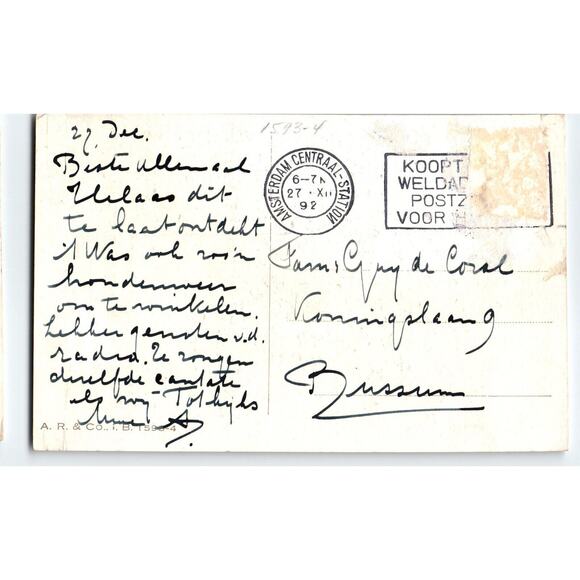 1593-4
27 Dec.
Beste Allemaal
Helaas dit
te laat ontdekt
Was ook zoo'n
hondenweer
om te winkelen.
Lekker genoten v.d.
radio. Ze zongen
dezelfde cantate
als wij Tot kijks
A. R. & Co., I. B. 1593-4
AMSTERDAM CENTRAAL-STATION
6-7
27 XII
92
KOOPT
WELDA
POSTZ
VOOR H
Fam: Guy de Coral
Koningslaan 9
Bussum